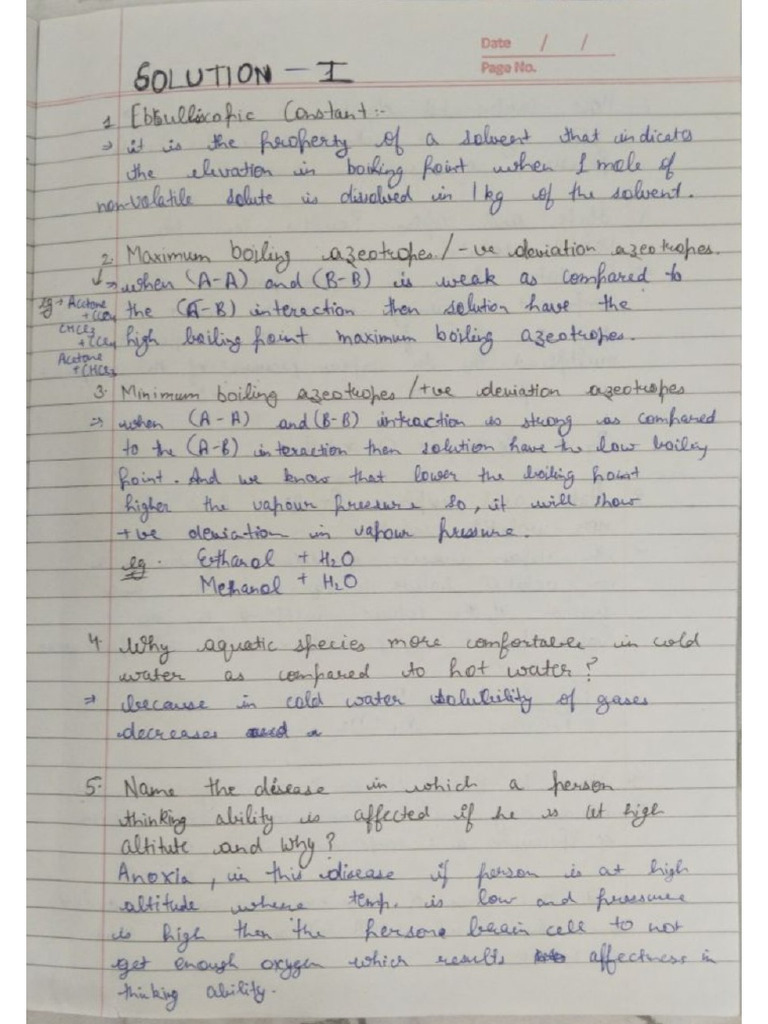 Date / /
Page No.
SOLUTION - I
1. Ebbulliscopic Constant:-
⇒ it is the property of a solvent that indicates
the elevation in boiling point when 1 mole of
non-volatile solute is dissolved in 1 kg of the solvent.
2. Maximum boiling azeotropes / -ve deviation azeotropes.
↓→ when (A-A) and (B-B) is weak as compared to
eg → Acetone the (A-B) interection then solution have the
CHCl3 + CCl4 high boiling point maximum boiling azeotropes.
Acetone
+ CHCl3
3. Minimum boiling azeotropes / +ve deviation azeotropes
⇒ when (A-A) and (B-B) intraction is strong as compared
to the (A-B) interaction then solution have the low boiling
point. And we know that lower the boiling point
higher the vapour pressure so, it will show
+ve deviation in vapour pressure.
eg. Ethanol + H2O
Methanol + H2O
4. Why aquatic species more comfortable in cold
water as compared to hot water?
⇒ because in cold water solubility of gases
decreases
5. Name the disease in which a person
thinking ability is affected if he is at high
altitute and why?
Anoxia, in this disease if person is at high
altitude where temp. is low and pressure
is high then the persons brain cell to not
get enough oxygen which results affectness in
thinking ability.